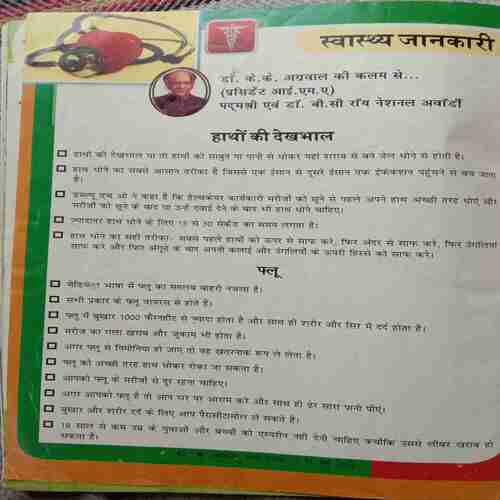 स्वास्थ्य जानकारी
डॉ. के.के. अग्रवाल की कलम से...
(प्रसिडेंट आई.एम.ए)
पद्मश्री एवं डॉ. बी.सी रॉय नेशनल अवॉर्डी
हाथों की देखभाल
हाथों की देखभाल या तो हाथों को साबुन या पानी से धोकर यहां शराब से बने जेल धोने से होती है।
हाथ धोने का सबसे आसान तरीका है जिससे एक इंसान से दूसरे इंसान एक इंफेकशन पहुंचने से बच जाता
है।
डब्ल्यू एच ओ ने कहा है कि हेल्थकेयर कार्यकारी मरीजों को छूने से पहले अपने हाथ अच्छी तरह धोएं और
मरीजों को छूने के बाद या उन्हें दवाई देने के बाद भी हाथ धोने चाहिए।
ज्यादातर हाथ धोने के लिए 15 से 30 सेकंड का समय लगता है।
हाथ धोने का सही तरीका- सबसे पहले हाथों को ऊपर से साफ करे, फिर अंदर से साफ करे, फिर उंगलियां
साफ करे और फिर अंगूठे के बाद अपनी कलाई और उंगलियों के ऊपरी हिस्से को साफ करे।
फ्लू
मेडिकल भाषा में फ्लू का मतलब बाहरी नजला है।
सभी प्रकार के फ्लू वायरस से होते हैं।
फ्लू में बुखार 1000 फैरनहीट से ज्यादा होता है और साथ ही शरीर और सिर में दर्द होता है।
मरीज का गला खराब और जुकाम भी होता है।
अगर फ्लू से निमोनिया हो जाए तो वह खतरनाक रूप ले लेता है।
फ्लू को अच्छी तरह हाथ धोकर रोका जा सकता है।
आपको फ्लू के मरीजों से दूर रहना चाहिए।
अगर आपको फ्लू है तो आप घर पर आराम करे और साथ ही ढेर सारा पानी पीएं।
बुखार और शरीर दर्द के लिए आप पैरासीटामोल ले सकते है।
18 साल से कम उम्र के युवाओं और बच्चों को एस्प्रीन नहीं देनी चाहिए क्योंकि उससे लीवर खराब हो
सकता है।